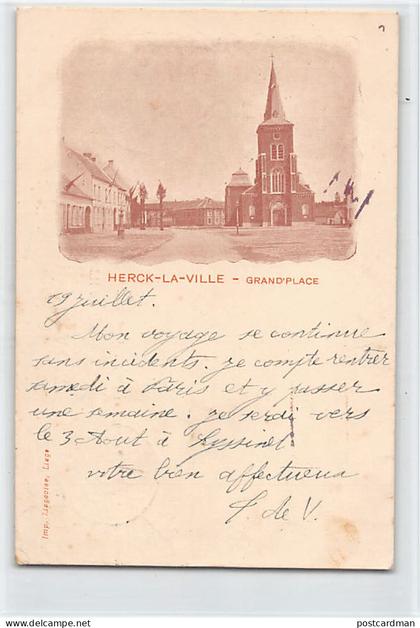 HERCK-LA-VILLE - GRAND'PLACE
19 juillet.
Mon voyage se continue
sans incidents. je compte rentrer
samedi à Paris et y passer
une semaine. je serai vers
le 3 Août à
votre bien affectueux
S. de V.
Imp. Liégeoise, Liége
postcardman